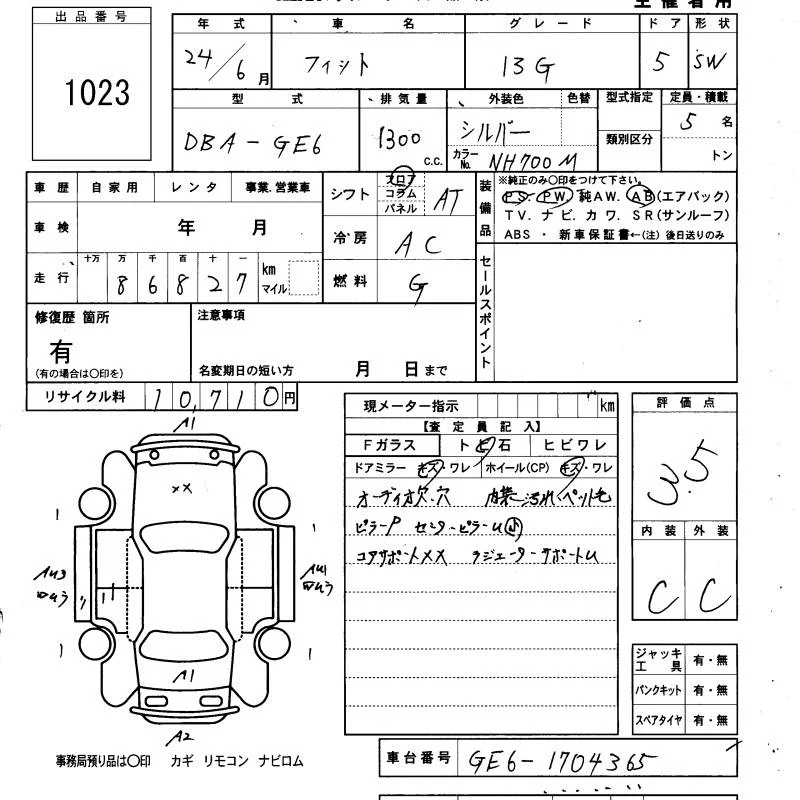 出品番号
1023
年式 車名 グレード ドア 形状
24/6月 フィット 13G 5 SW
型式 排気量 外装色 色替 型式指定 定員・積載
DBA-GE6 1300 c.c. シルバー 類別区分 5 名
カラーNo. NH700M トン
車歴 自家用 レンタ 事業.営業車
シフト フロア コラム パネル AT
車検 年 月
冷房 AC
走行 十万 万 千 百 十 一 km マイル
8 6 8 2 7
燃料 G
装備品 ※純正のみ〇印をつけて下さい。
PS. PW. 純AW. AB(エアバック)
TV. ナビ. カワ. SR(サンルーフ)
ABS ・ 新車保証書←(注) 後日送りのみ
セールスポイント
修復歴 箇所
有
(有の場合は〇印を)
注意事項
名変期日の短い方 月 日まで
リサイクル料 10,710円
現メーター指示 km
【査定員記入】
Fガラス トビ石 ヒビワレ
ドアミラー キズ・ワレ ホイール(CP) キズ・ワレ
オーディオ欠.穴 内装汚れ.ペット毛
ピラーP センターピラーU小
コアサポートXX ラジエーターサポートU
評価点
3.5
内装 外装
C C
A1
XX
AU3
AU1
A1
A2
ジャッキ工具 有・無
パンクキット 有・無
スペアタイヤ 有・無
事務局預り品は〇印 カギ リモコン ナビロム
車台番号 GE6-1704365